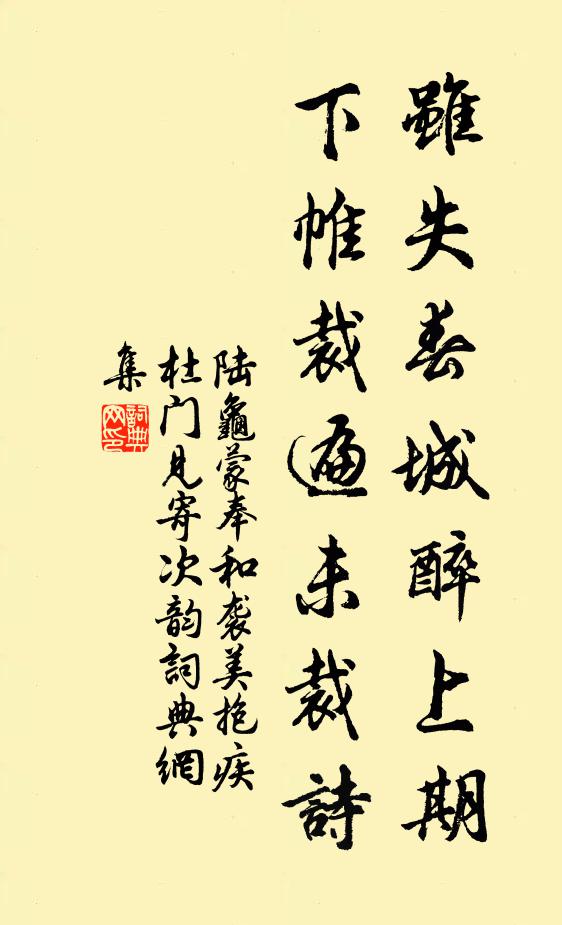 雖失春城醉上期
下帷裁遍未裁詩
陆龜蒙奉和袭美抱疾
杜门见寄次韵詞典網
集
詞典
网印